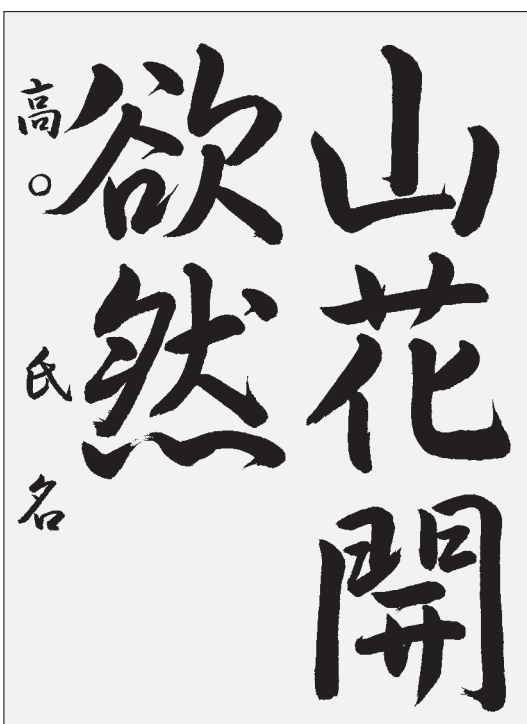 山花開
欲然
高○ 氏名